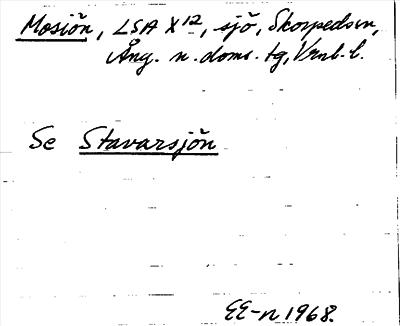 Mosjön, LSA X12, sjö, Skorpeds sn,
Ång. n. doms. tg, Vrnl. l.
Se Stavarsjön
EE-n 1968.